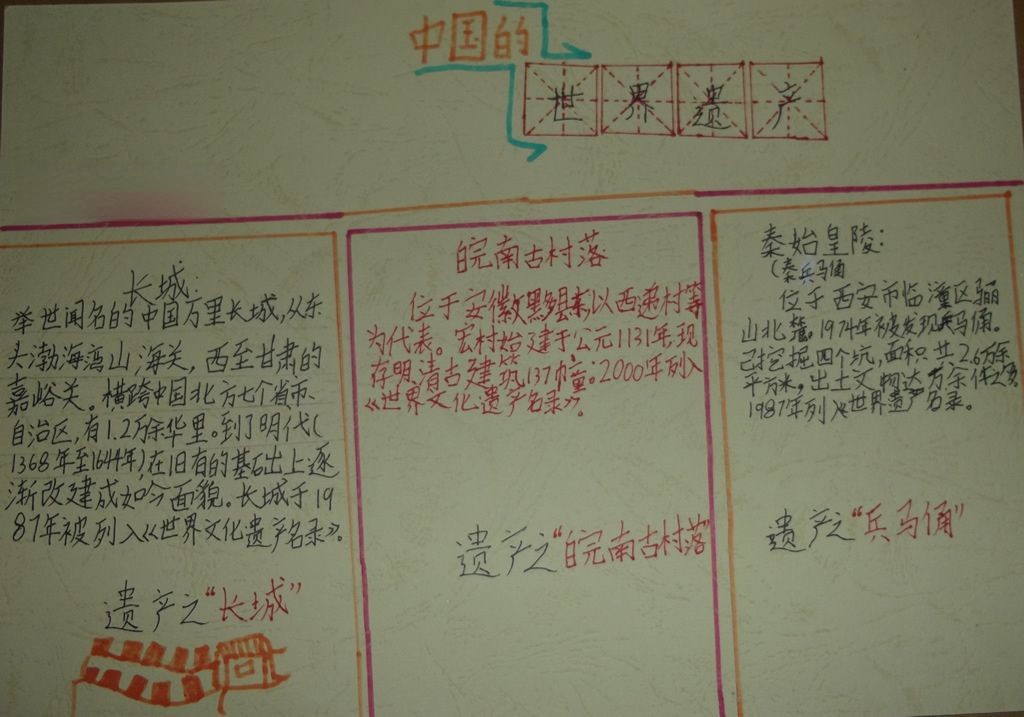 中国的
世界遗产
长城:
举世闻名的中国万里长城,从东
头渤海湾山海关,西至甘肃的
嘉峪关。横跨中国北方七个省市、
自治区,有1.2万余华里。到了明代(
1368年至1644年)在旧有的基础上逐
渐改建成如今面貌。长城于19
87年被列入《世界文化遗产名录》。
遗产之“长城”
皖南古村落
位于安徽黟县东以西递村等
为代表。宏村始建于公元1131年现
存明清古建筑137幢。2000年列入
《世界文化遗产名录》。
遗产之“皖南古村落”
秦始皇陵:
(秦兵马俑
位于西安市临潼区骊
山北麓。1974年被发现兵马俑。
已挖掘四个坑,面积共2.6万余
平方米。出土文物达万余件之多
1987年列入《世界遗产名录。
遗产之“兵马俑”